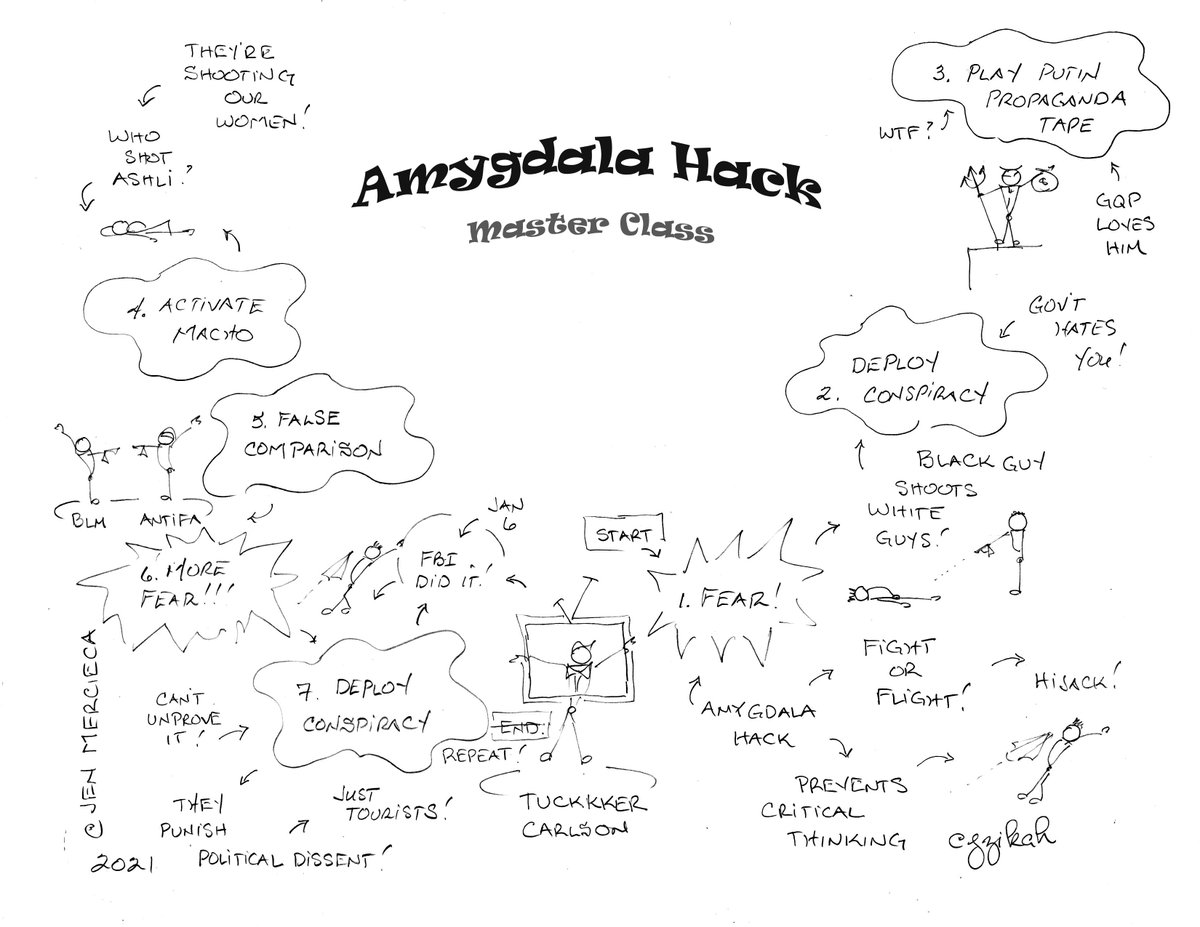 Amygdala Hack
Master Class
START
1. FEAR!
AMYGDALA
HACK
FIGHT
OR
FLIGHT!
HIJACK!
PREVENTS
CRITICAL
THINKING
BLACK GUY
SHOOTS
WHITE
GUYS!
DEPLOY
2. CONSPIRACY
GOV'T
HATES
YOU!
3. PLAY PUTIN
PROPAGANDA
TAPE
WTF?
GQP
LOVES
HIM
4. ACTIVATE
MACHO
THEY'RE
SHOOTING
OUR
WOMEN!
WHO
SHOT
ASHLI?
5. FALSE
COMPARISON
BLM
ANTIFA
6. MORE
FEAR!!!
7. DEPLOY
CONSPIRACY
CAN'T
UNPROVE
IT!
THEY
PUNISH
POLITICAL DISSENT!
JUST
TOURISTS!
FBI
DID IT!
JAN
6
END.
REPEAT!
TUCKKKER
CARLSON
© JEN MERCIECA
2021